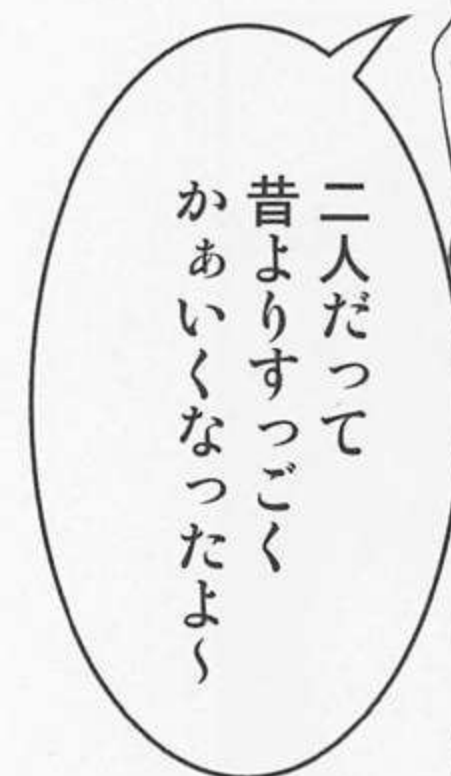 二人だって
昔よりすっごく
かぁいくなったよ～